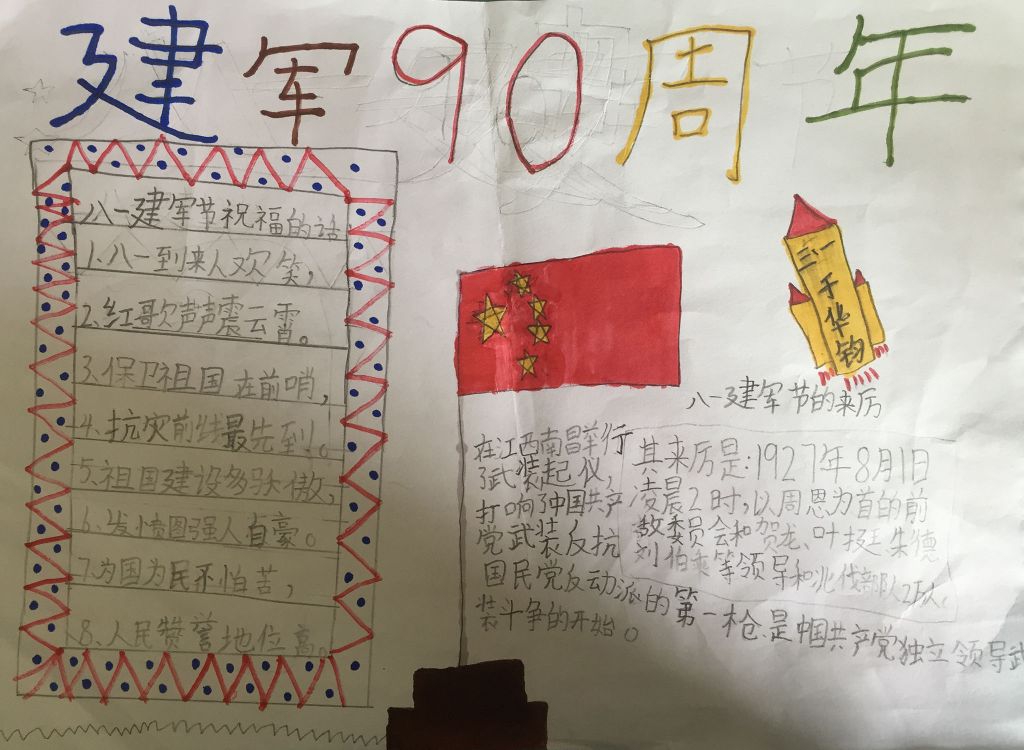 建军90周年
八一建军节祝福的话
1.八一到来人欢笑，
2.红歌声声震云霄。
3.保卫祖国在前哨，
4.抗灾前线最先到。
5.祖国建设多骄傲，
6.发愤图强人自豪。
7.为国为民不怕苦，
8.人民赞誉地位高。
三一
千
华
钧
八一建军节的来历
其来历是：1927年8月1日
凌晨2时，以周恩为首的前
敌委员会和贺龙、叶挺朱德
刘伯乘等领导和北伐部队2万人，
在江西南昌举行
了武装起仪，
打响了中国共产
党武装反抗
国民党反动派的第一枪.是中国共产党独立领导武
装斗争的开始。